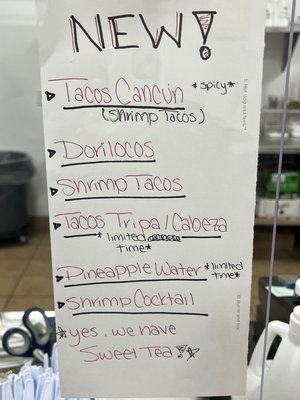 NEW!
Tacos Cancún *spicy*
(Shrimp Tacos)
Dorilocos
Shrimp Tacos
Tacos Tripa/Cabeza
*limited time*
Pineapple Water *limited time*
Shrimp Cocktail
☆yes, we have
Sweet Tea!☆